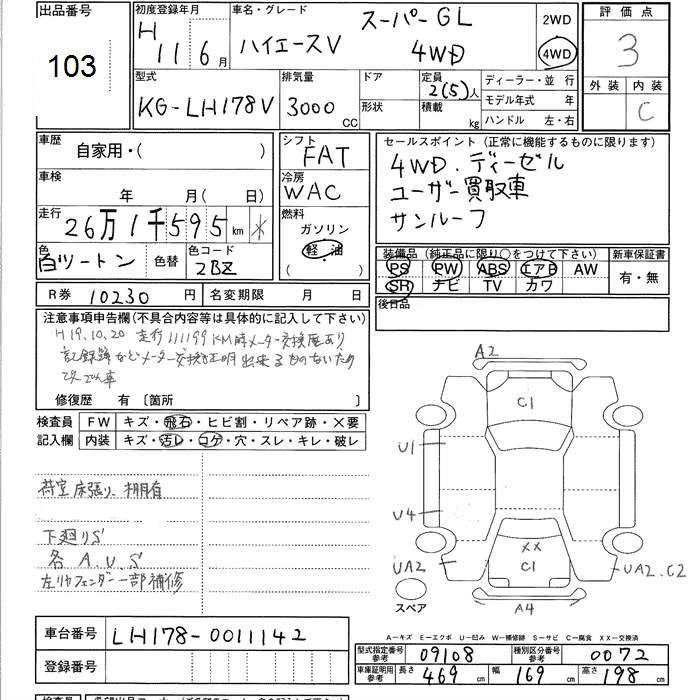 出品番号
103
初度登録年月
H 11 6 月
車名・グレード
ハイエースV スーパーGL 4WD
2WD
4WD
評価点
3
外装 内装
C
型式
KG-LH178V
排気量
3000 CC
ドア
形状
定員
2(5)人
積載
kg
ディーラー・並 行
モデル年式 年
ハンドル 左・右
車歴
自家用・( )
車検
年 月( 日)
走行
26万1千595 km *
色
白ツートン 色替
色コード
2BZ
シフト
FAT
冷房
WAC
燃料
ガソリン
軽・油
( )
セールスポイント(正常に機能するものに限ります)
4WD.ディーゼル
ユーザー買取車
サンルーフ
装備品(純正品に限り○をつけて下さい)
PS PW ABS エアB AW
SR ナビ TV カワ
新車保証書
有・無
後日品
R券 10230 円
名変期限 月 日
注意事項申告欄(不具合内容等は具体的に記入して下さい)
H19.10.20 走行111199KM時メーター交換歴あり
記録簿などメーター交換証明出来るものないため
改ざん車
修復歴 有 〔箇所 〕
検査員
記入欄
FW キズ・飛石・ヒビ割・リペア跡・×要
内装 キズ・汚レ・コゲ・穴・スレ・キレ・破レ
荷室床張り、棚有
下廻りS
各A.U.S
左リヤフェンダー一部補修
A2
C1
U1
U4
UA2
XX
C1
UA2.C2
A4
スペア
A―キズ E―エクボ U―凹み W―補修跡 S―サビ C―腐食 XX―交換済
車台番号
LH178-0011142
登録番号
型式指定番号
参考
09108
種別区分番号
参考
0072
車庫証明用
参考
長さ 469 cm
幅 169 cm
高さ 198 cm